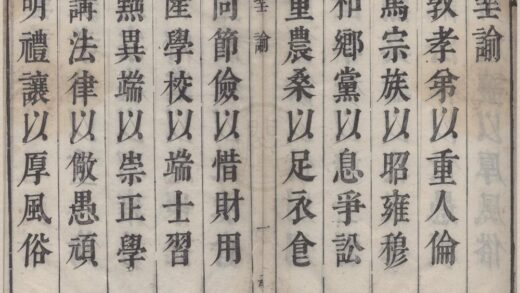 聖諭
敦孝弟以重人倫
篤宗族以昭雍穆
和鄉黨以息爭訟
重農桑以足衣食
聖諭 一
尚節儉以惜財用
隆學校以端士習
黜異端以崇正學
講法律以儆愚頑
明禮讓以厚風俗